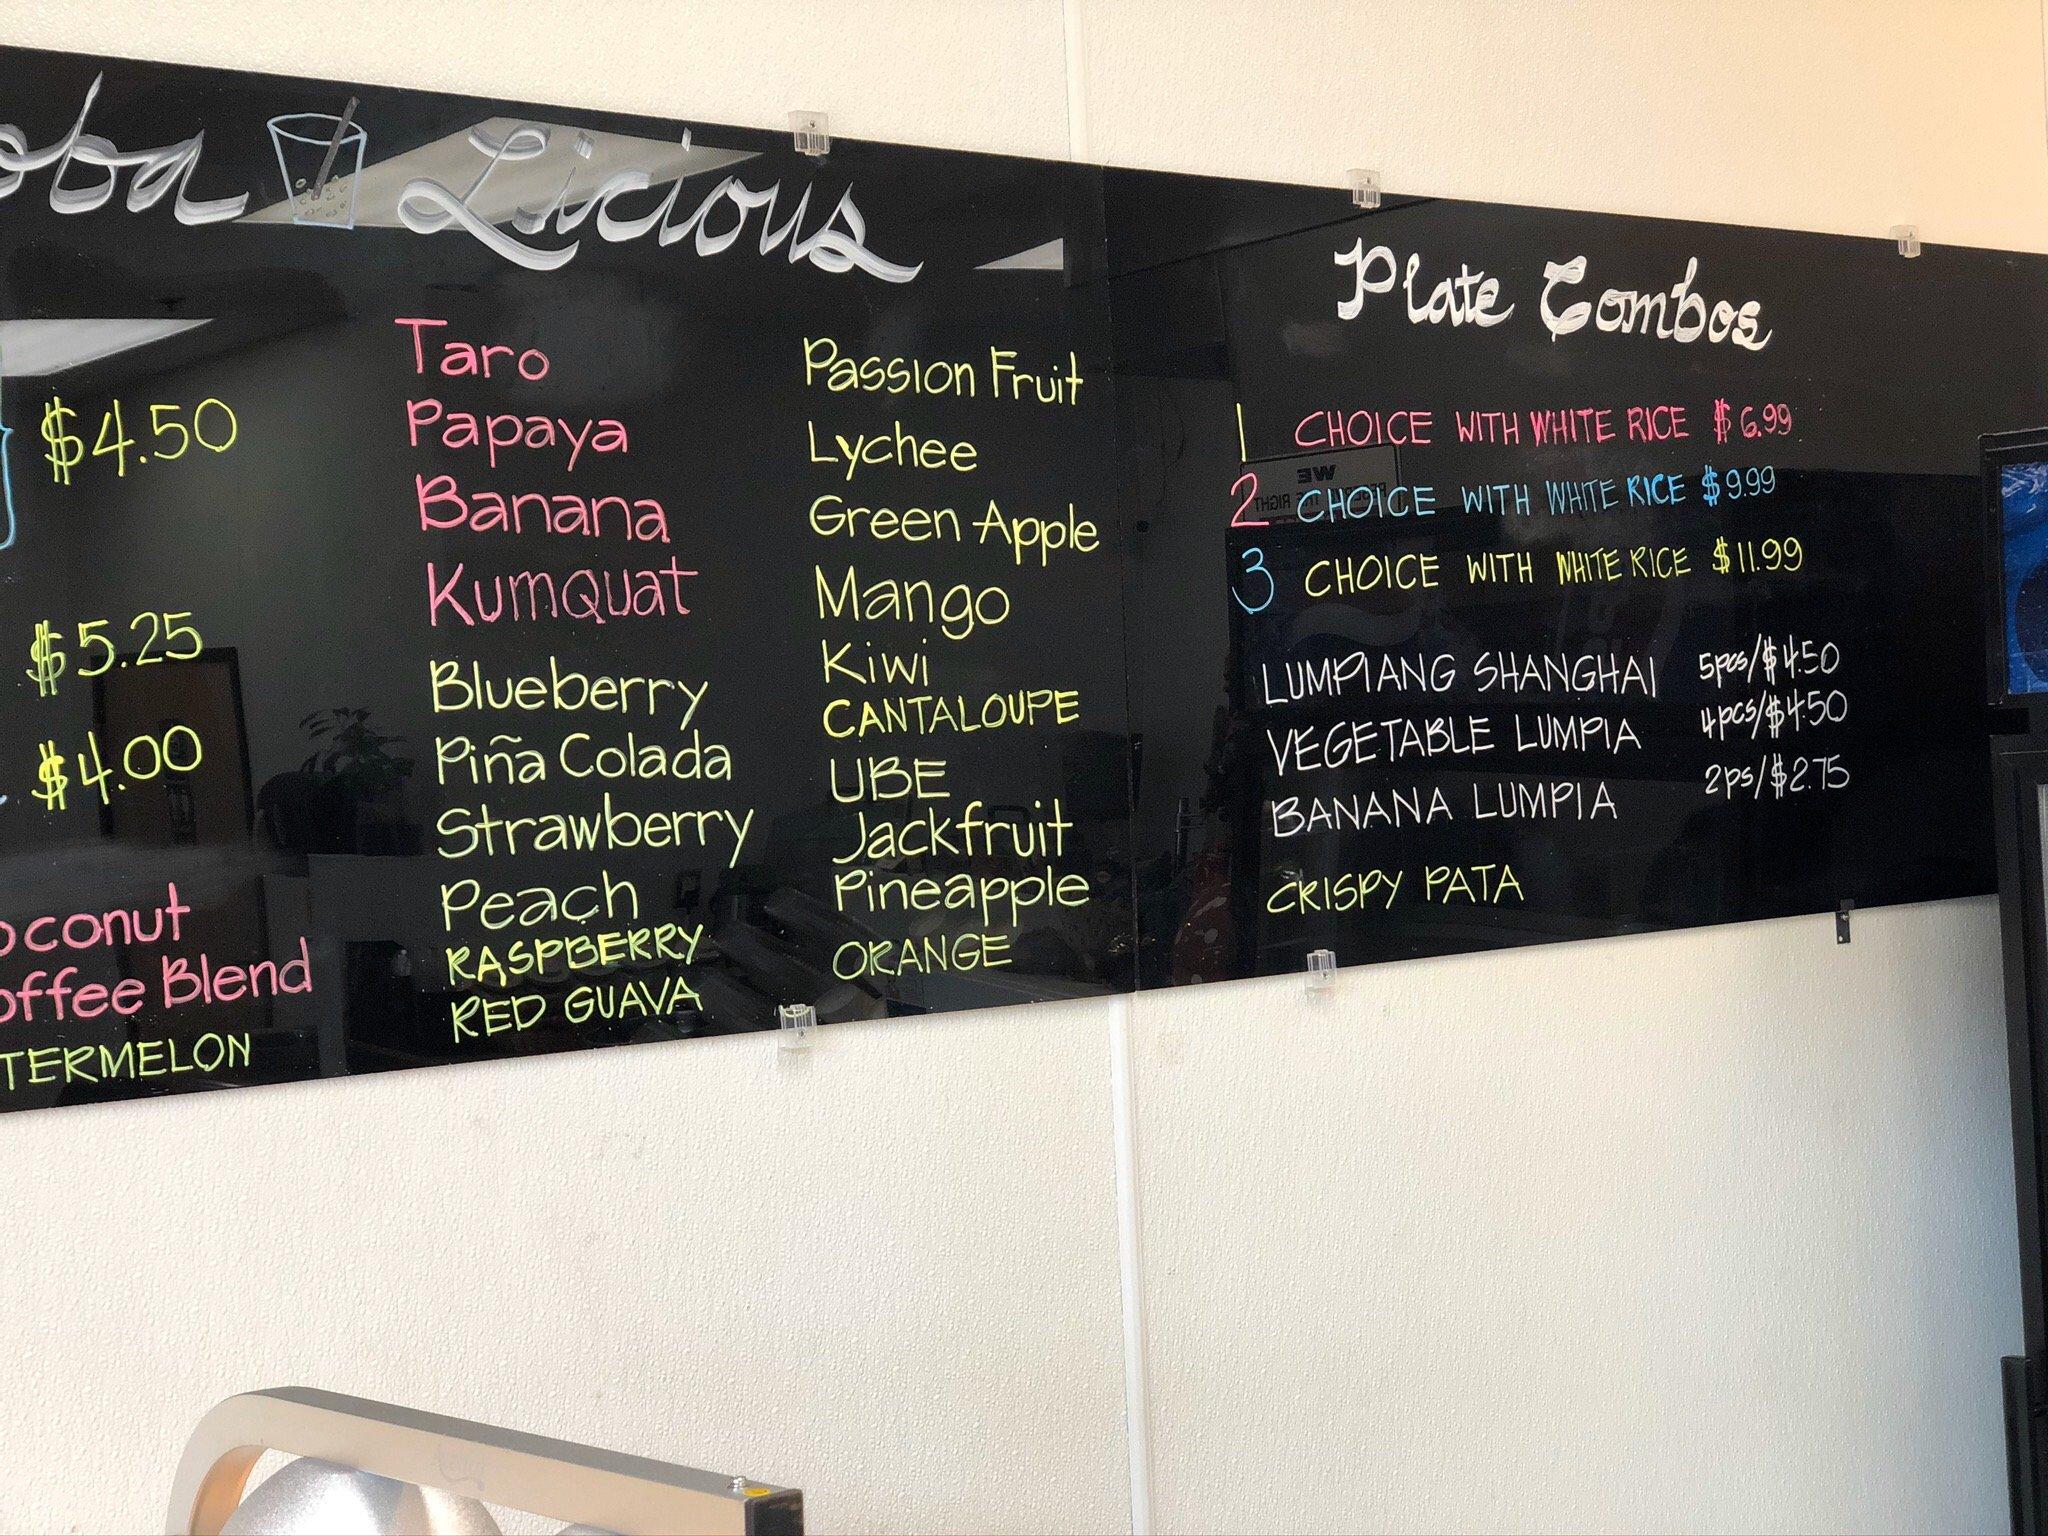 Licious
$4.50
$5.25
$4.00
TERMELON
Blend
Taro
Papaya
Banana
Kumquat
Blueberry
Piña Colada
Strawberry
Peach
RASPBERRY
RED GUAVA
Passion Fruit
Lychee
Green Apple
Mango
Kiwi
CANTALOUPE
UBE
Jackfruit
Pineapple
ORANGE
Plate Combos
1 CHOICE WITH WHITE RICE $6.99
2 CHOICE WITH WHITE RICE $9.99
3 CHOICE WITH WHITE RICE $11.99
LUMPIANG SHANGHAI 5pcs/$4.50
VEGETABLE LUMPIA 4pcs/$4.50
BANANA LUMPIA 2ps/$2.75
CRISPY PATA